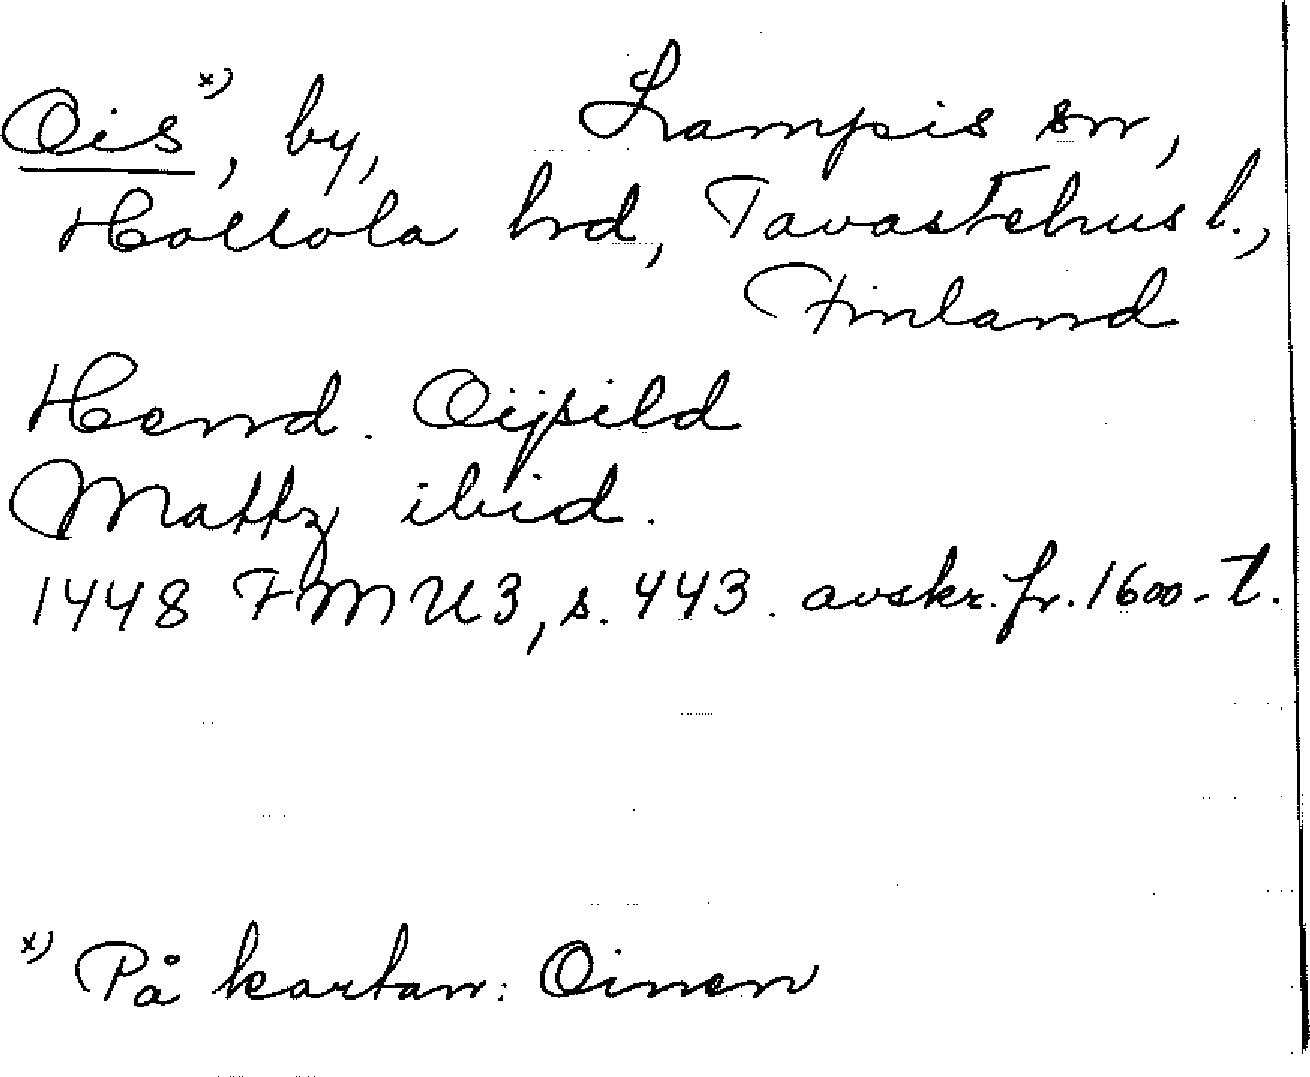 Ois x), by, Lampis sn,
Hollola hd, Tavastehus l.,
Finland
Hend. Oijsild
Mattz ibid.
1448 FMU 3, s. 443. avskr. fr. 1600-t.
x) På kartan: Oinen